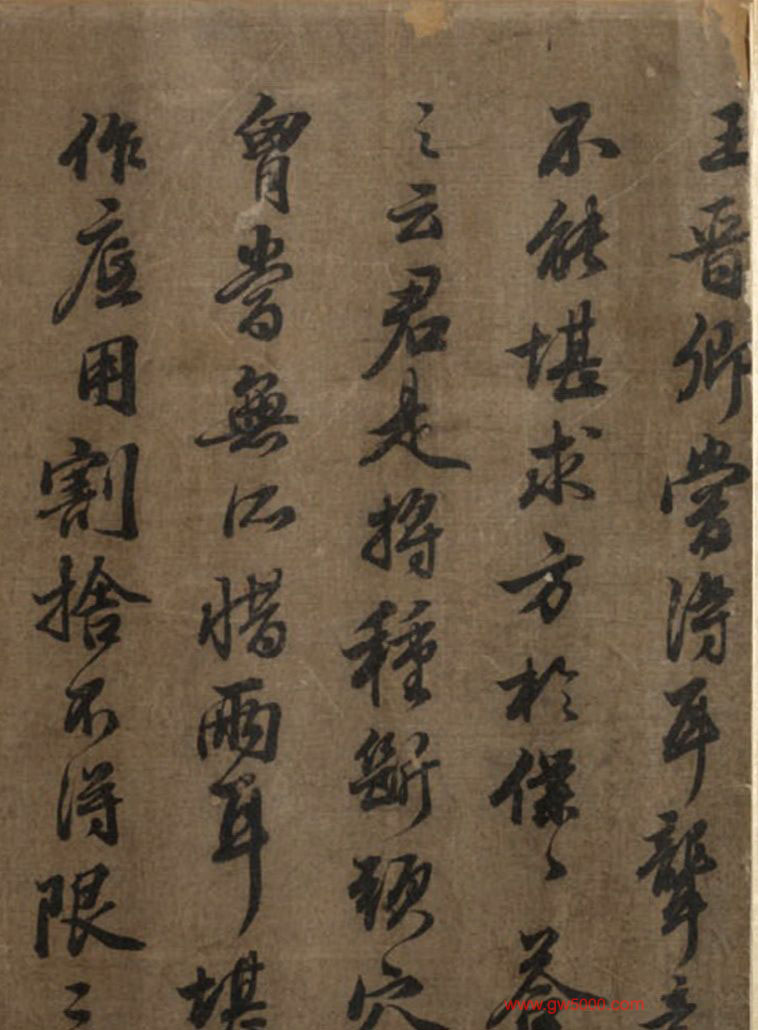 王晋卿嘗得耳聾
不能堪求方於僕〻答
之云君是將種斷頭穴
胷嘗無所惜兩耳堪
作底用割捨不得限三
www.gw5000.com